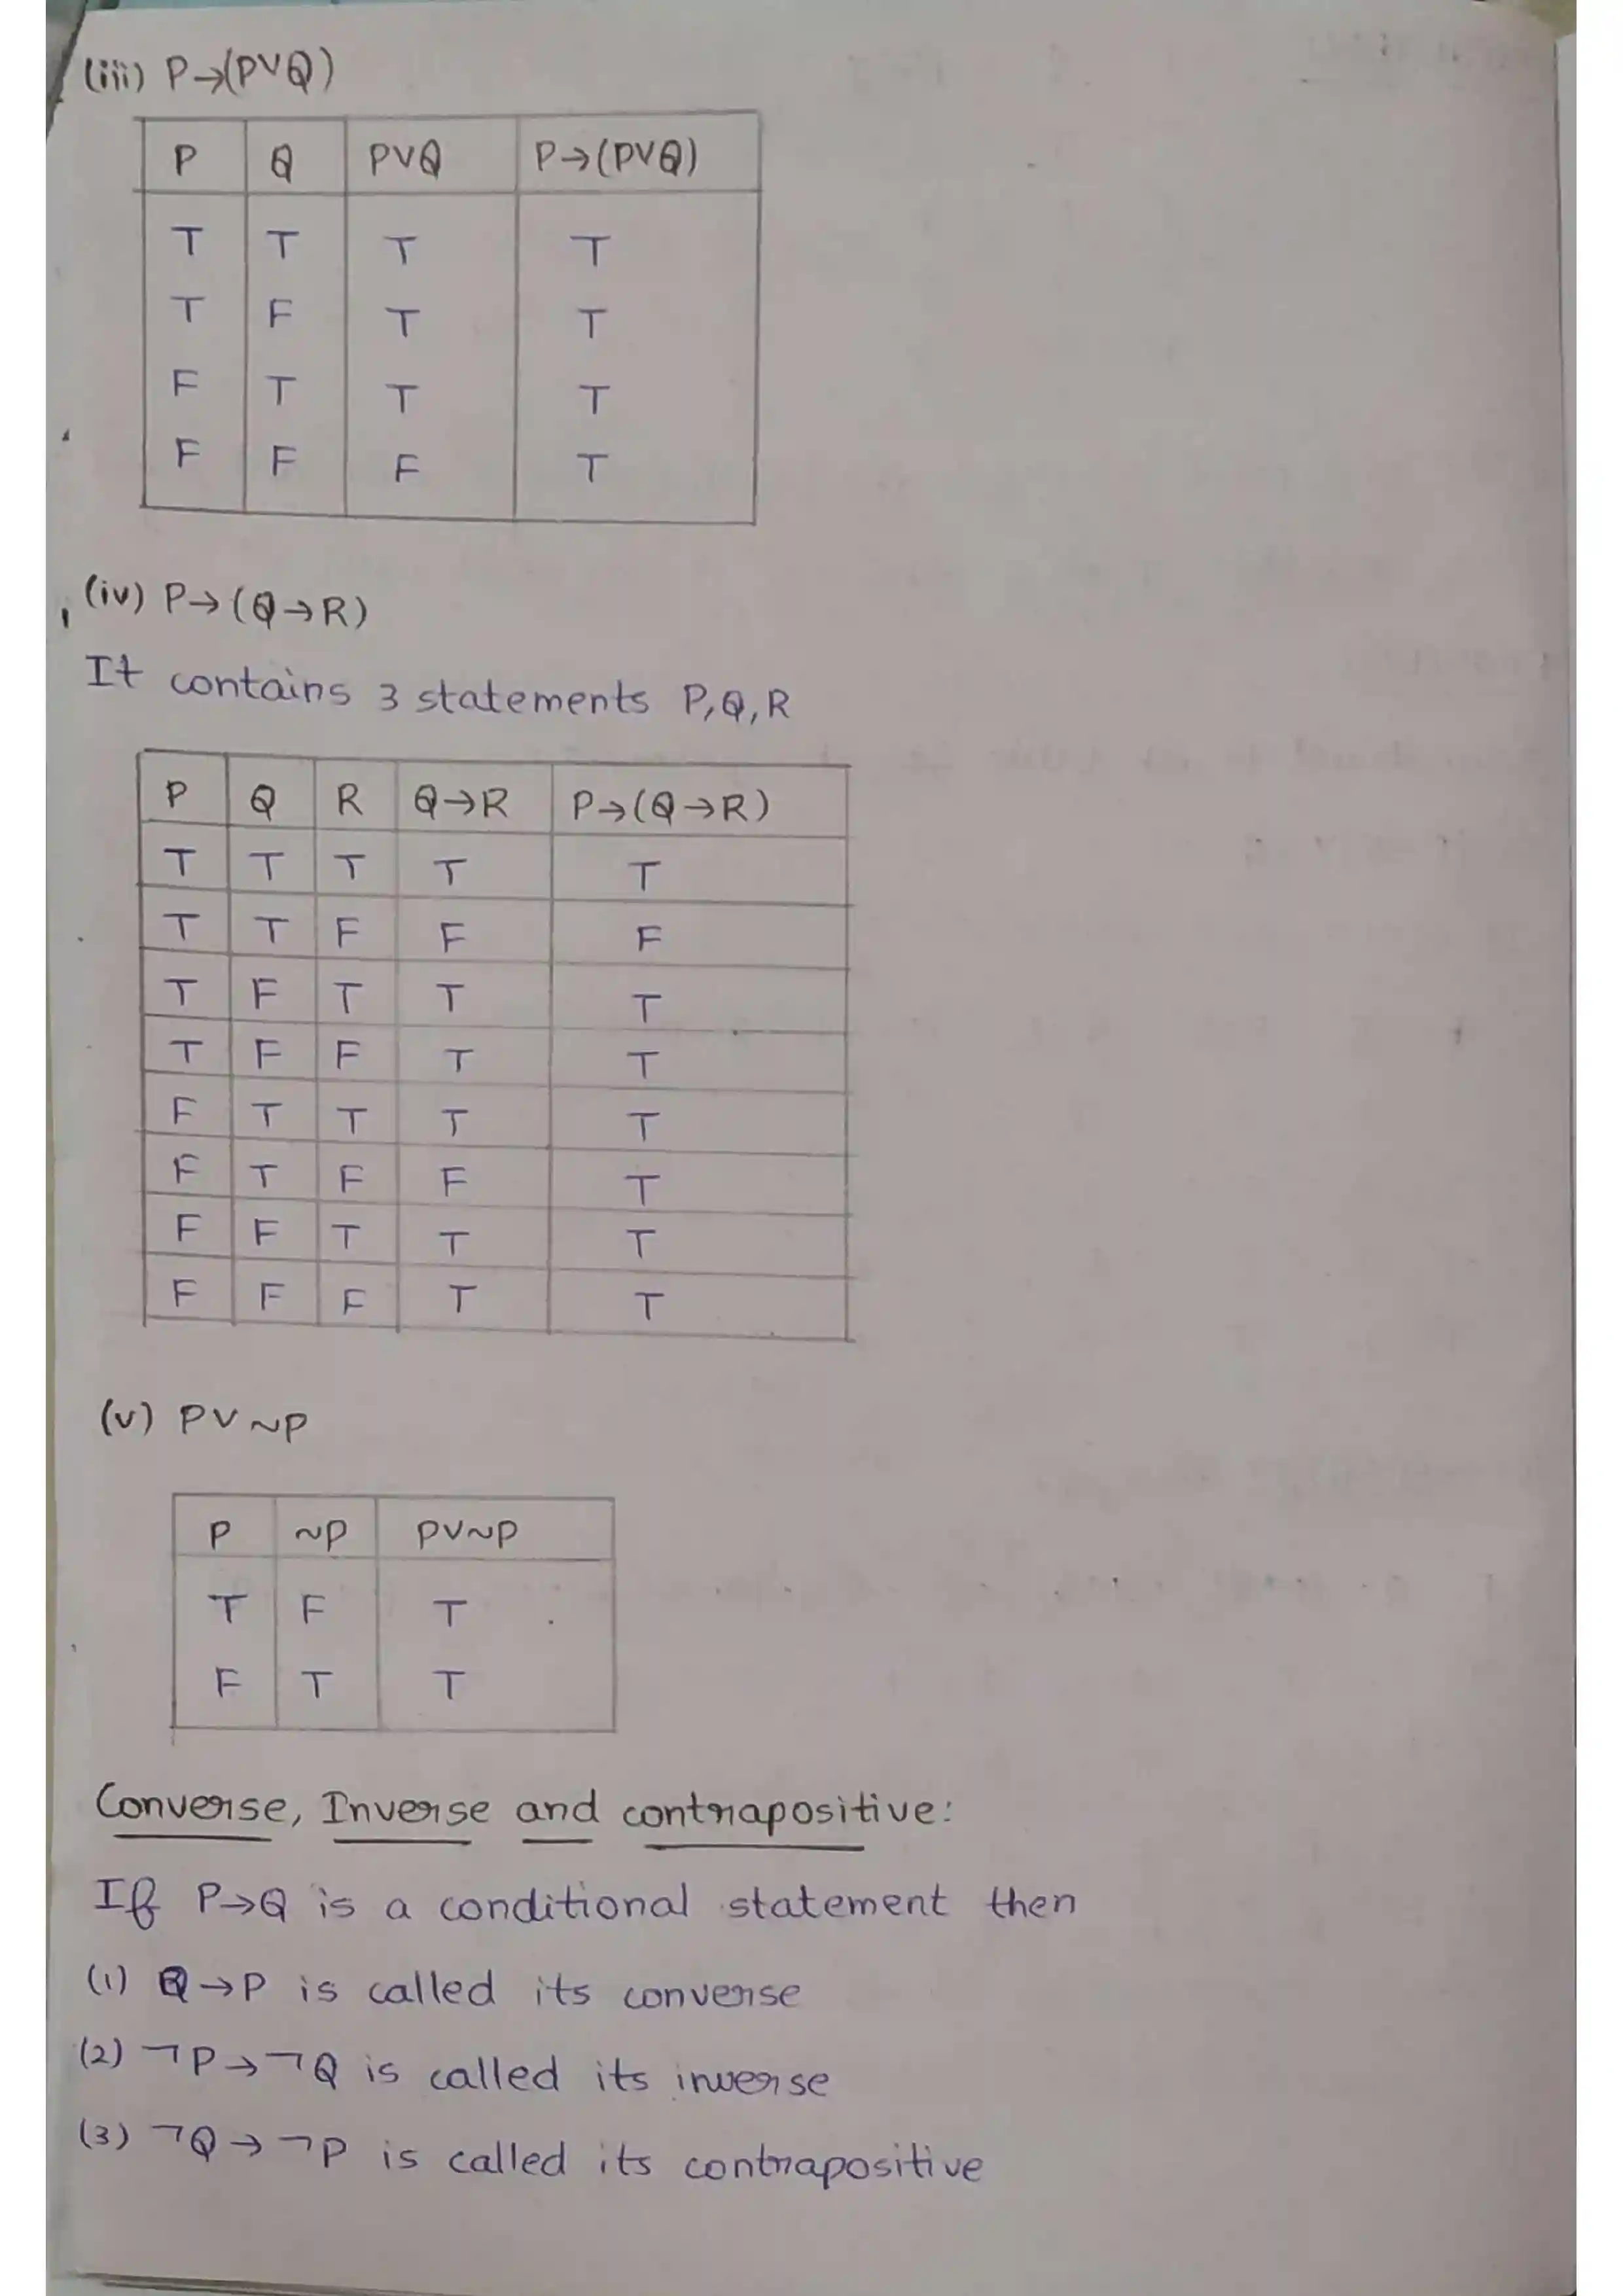 (iii) P→(P∨Q)
P Q P∨Q P→(P∨Q)
T T T T
T F T T
F T T T
F F F T
(iv) P→(Q→R)
It contains 3 statements P,Q,R
P Q R Q→R P→(Q→R)
T T T T T
T T F F F
T F T T T
T F F T T
F T T T T
F T F F T
F F T T T
F F F T T
(v) P∨~P
P ~P P∨~P
T F T
F T T
Converse, Inverse and contrapositive:
If P→Q is a conditional statement then
(1) Q→P is called its converse
(2) ¬P→¬Q is called its inverse
(3) ¬Q→¬P is called its contrapositive